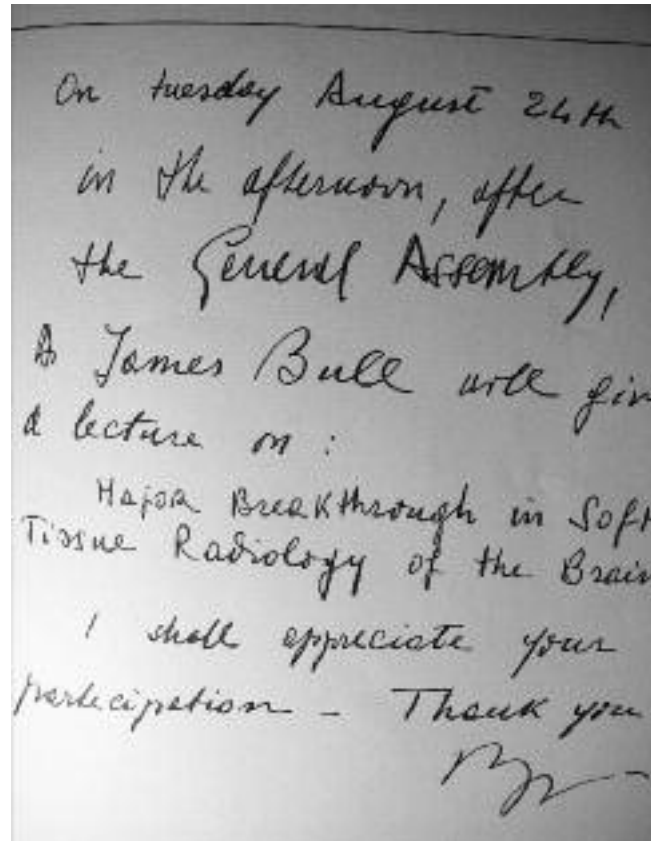 On tuesday August 24th
in the afternoon, after
the General Assembly,
Dr James Bull will give
a lecture on :
Major Breakthrough in Soft
Tissue Radiology of the Brain
I shall appreciate your
partecipation - Thank you